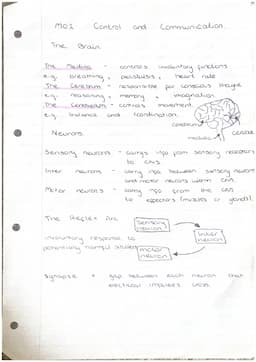 M02 Control and Communication
The Brain
The Medulla - controls involuntary functions
e.g. breathing, peristalsis, heart rate
The Cerebrum - responsible for conscious thought
e.g. reasoning, memory, imagination
The Cerebellum - controls movement
e.g. balance and coordination.
cerebrum
medulla
Neurons
Sensory neurons - carrys info from sensory receptors
to CNS
Inter neurons - carry info between sensory neurons
and motor neurons within CNS
Motor neurons - carry info from the CNS
to effectors (muscles or glands).
The Reflex Arc
sensory
neuron
Inter
neuron
motor
neuron
involuntary response to
potentially harmful
Synapse - gap between each neuron that
electrical impulses cross